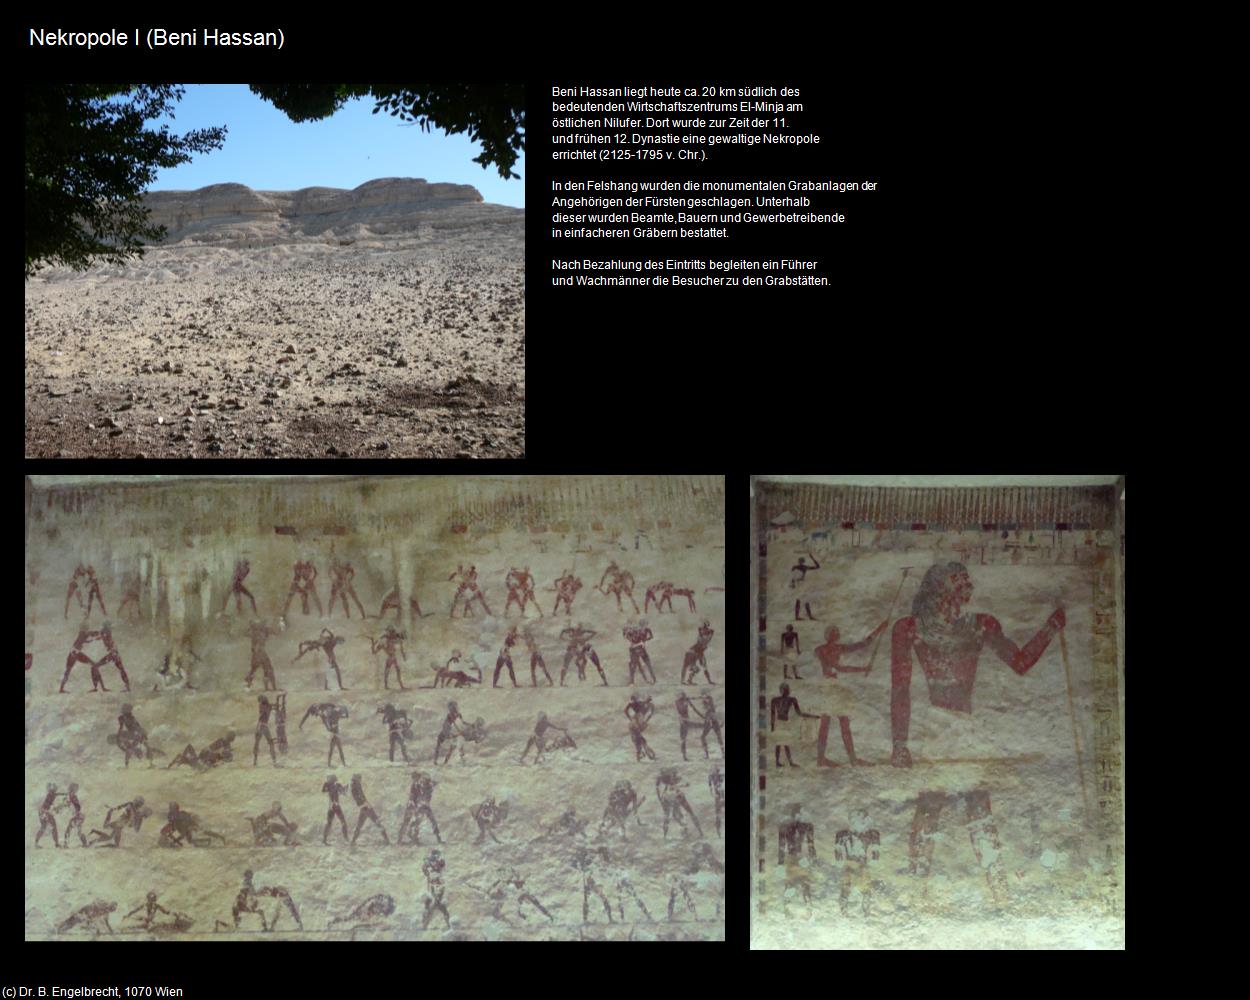 Nekropole I (Beni Hassan)
Beni Hassan liegt heute ca. 20 km südlich des
bedeutenden Wirtschaftszentrums El-Minja am
östlichen Nilufer. Dort wurde zur Zeit der 11.
und frühen 12. Dynastie eine gewaltige Nekropole
errichtet (2125-1795 v. Chr.).
In den Felshang wurden die monumentalen Grabanlagen der
Angehörigen der Fürsten geschlagen. Unterhalb
dieser wurden Beamte, Bauern und Gewerbetreibende
in einfacheren Gräbern bestattet.
Nach Bezahlung des Eintritts begleiten ein Führer
und Wachmänner die Besucher zu den Grabstätten.
(c) Dr. B. Engelbrecht, 1070 Wien